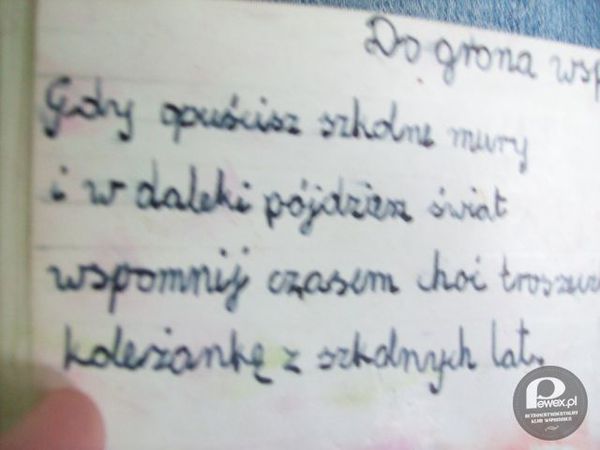 Do grona wsp
Gdy opuścisz szkolne mury
i w daleki pójdziesz świat
wspomnij czasem choć troszecz
koleżankę z szkolnych lat.
Pewex.pl
RETROSENTYMENTALNY
KLUB WSPOMNIEŃ